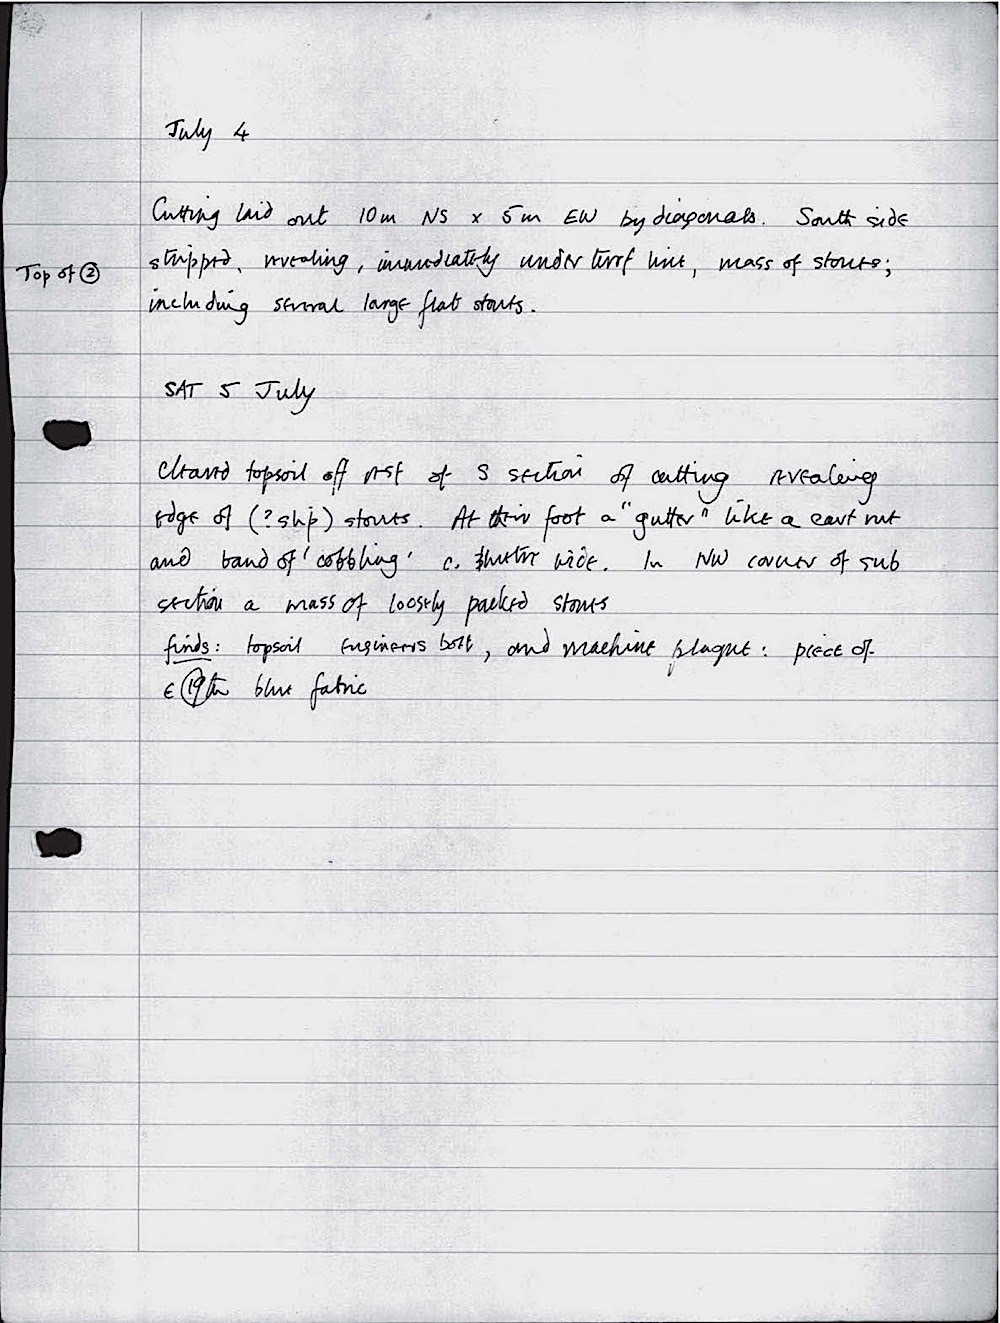 July 4
Cutting laid out 10m NS x 5m EW by diagonals. South side
Top of ② stripped, revealing, immediately under turf line, mass of stones;
including several large flat stones.
SAT 5 July
Cleared topsoil off rest of S section of cutting revealing
edge of (? slip) stones. At their foot a "gutter" like a cart rut
and band of 'cobbling' c. wide. In NW corner of sub
section a mass of loosely packed stones
finds: topsoil Engineers bolt, and machine plaque: piece of
E 19th blue fabric